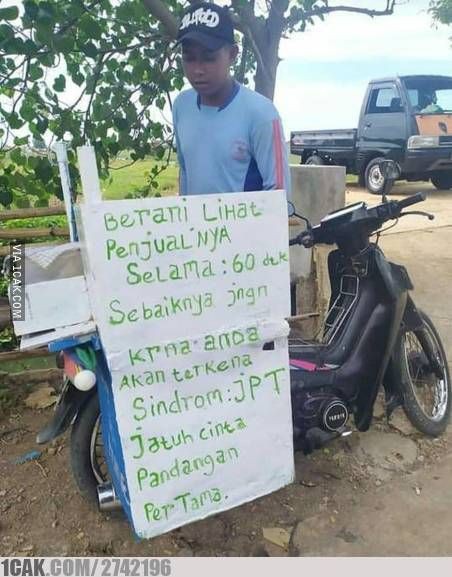 BeraNi LiHat
PeNjUaL'NYA
SeLama : 60 deti
Sebaiknya jngn
krna anda
AkaN terkena
SiNdrom : JPT
jatuh cinta
PaNdaNgaN
PerTama.
VIA 1CAK.COM
YAMAHA
1CAK.COM/2742196